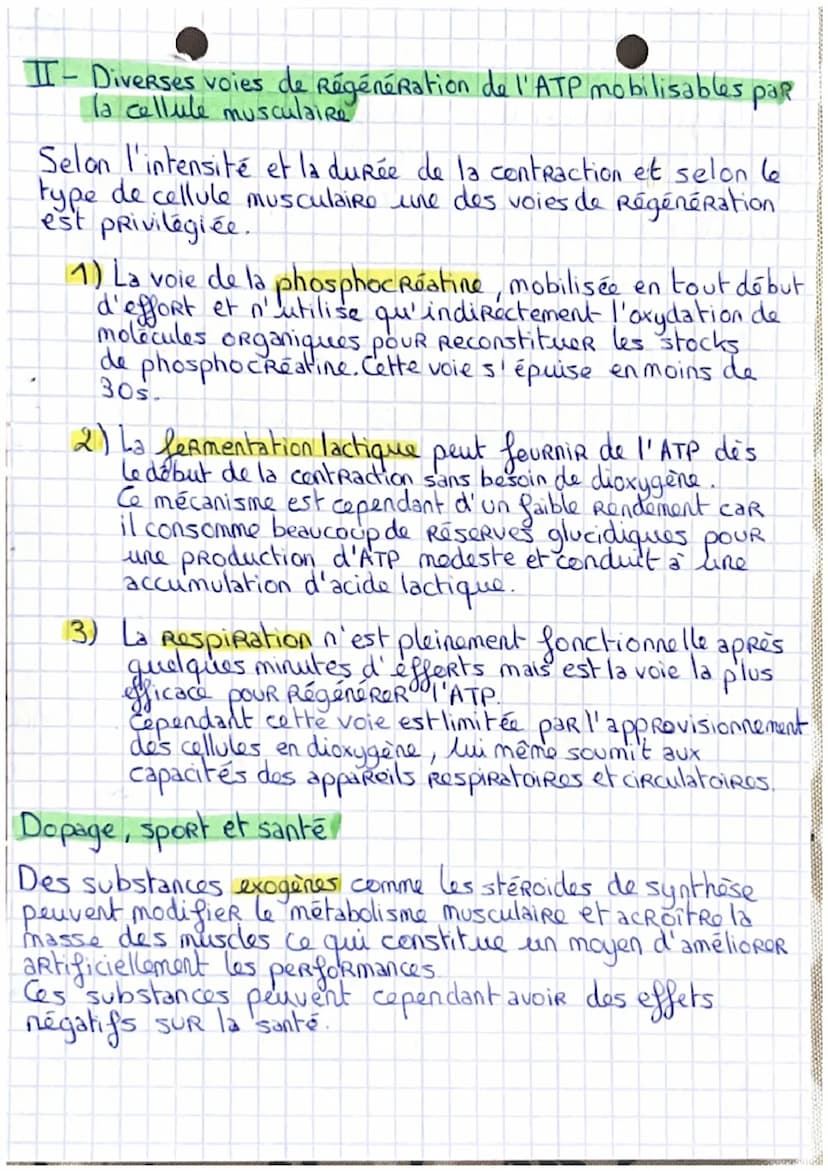 II - Diverses voies de Régénération de l'ATP mobilisables par
la cellule musculaire
Selon l'intensité et la durée de la contraction et selon le
type de cellule musculaire une des voies de Régénération
est privilégiée.
1) La voie de la phosphocréatine, mobilisée en tout début
d'effort et n'utilise qu'indirectement l'oxydation de
molécules organiques pour reconstituer les stocks
de phosphocréatine. Cette voie s'épuise en moins de
30s.
2) La fermentation lactique peut fournir de l'ATP dès
le début de la contraction sans besoin de dioxygène.
Ce mécanisme est cependant d'un faible rendement car
il consomme beaucoup de réserves glucidiques pour
une production d'ATP modeste et conduit à une
accumulation d'acide lactique.
3) La respiration n'est pleinement fonctionnelle après
quelques minutes d'efforts mais est la voie la plus
efficace pour régénérer l'ATP.
Cependant cette voie est limitée par l'approvisionnement
des cellules en dioxygène, lui même soumit aux
capacités des appareils respiratoires et circulatoires.
Dopage, sport et santé
Des substances exogènes comme les stéroides de synthèse
peuvent modifier le métabolisme musculaire et acroître la
masse des muscles ce qui constitue un moyen d'améliorer
artificiellement les performances
Ces substances peuvent cependant avoir des effets
négatifs sur la santé.